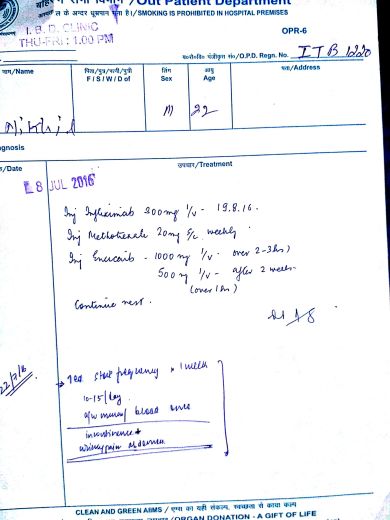 बहिरंग रोगी विभाग / Out Patient Department
के अन्दर धूम्रपान मना है। / SMOKING IS PROHIBITED IN HOSPITAL PREMISES
I. B. D. CLINIC
THU-FRI: 1.00 PM
OPR-6
O.P.D. Regn. No. ITB 1220
नाम/Name पिता/पुत्र/पत्नी/पुत्री लिंग आयु पता/Address
F / S / W / D of Sex Age
M 22
Nikhil
gnosis
/Date उपचार/Treatment
28 JUL 2016
Inj Infliximab 300mg I/v - 19.8.16.
Inj Methotrexate 20mg S/c weekly
Inj Encicarb - 1000mg I/v - over 2-3 hrs)
500mg I/v - after 2 weeks
(over 1 hr)
Continue rest.
22/7/16
Stool frequency x 1 week
10-15/day
blood
incontinence +
CLEAN AND GREEN AIIMS / एम्स का यही संकल्प, स्वच्छता से काया कल्प
/ORGAN DONATION - A GIFT OF LIFE